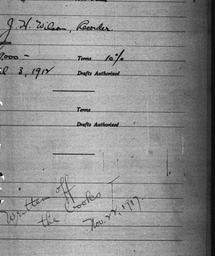 J. H. Wilson, Recorder.
,000 — Terms 10%
il 3, 1912 Drafts Authorized
Terms
Drafts Authorized
Written off
the Books
Nov. 22, 1917.